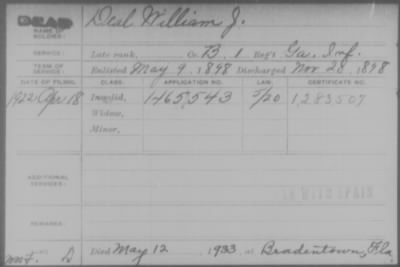 DEAD
NAME OF SOLDIER: Deal William J.
SERVICE: Late rank, Co. B, 1 Reg't Ga. Inf.
TERM OF SERVICE: Enlisted May 9, 1898 Discharged Nov 28, 1898
DATE OF FILING. CLASS. APPLICATION NO. LAW. CERTIFICATE NO.
1922 Apr 18 Invalid, 1465,543 5/20 1,283507
Widow,
Minor,
ADDITIONAL SERVICES:
WITH SPAIN
REMARKS:
D Died May 12, 1933 at Bradentown, Fla